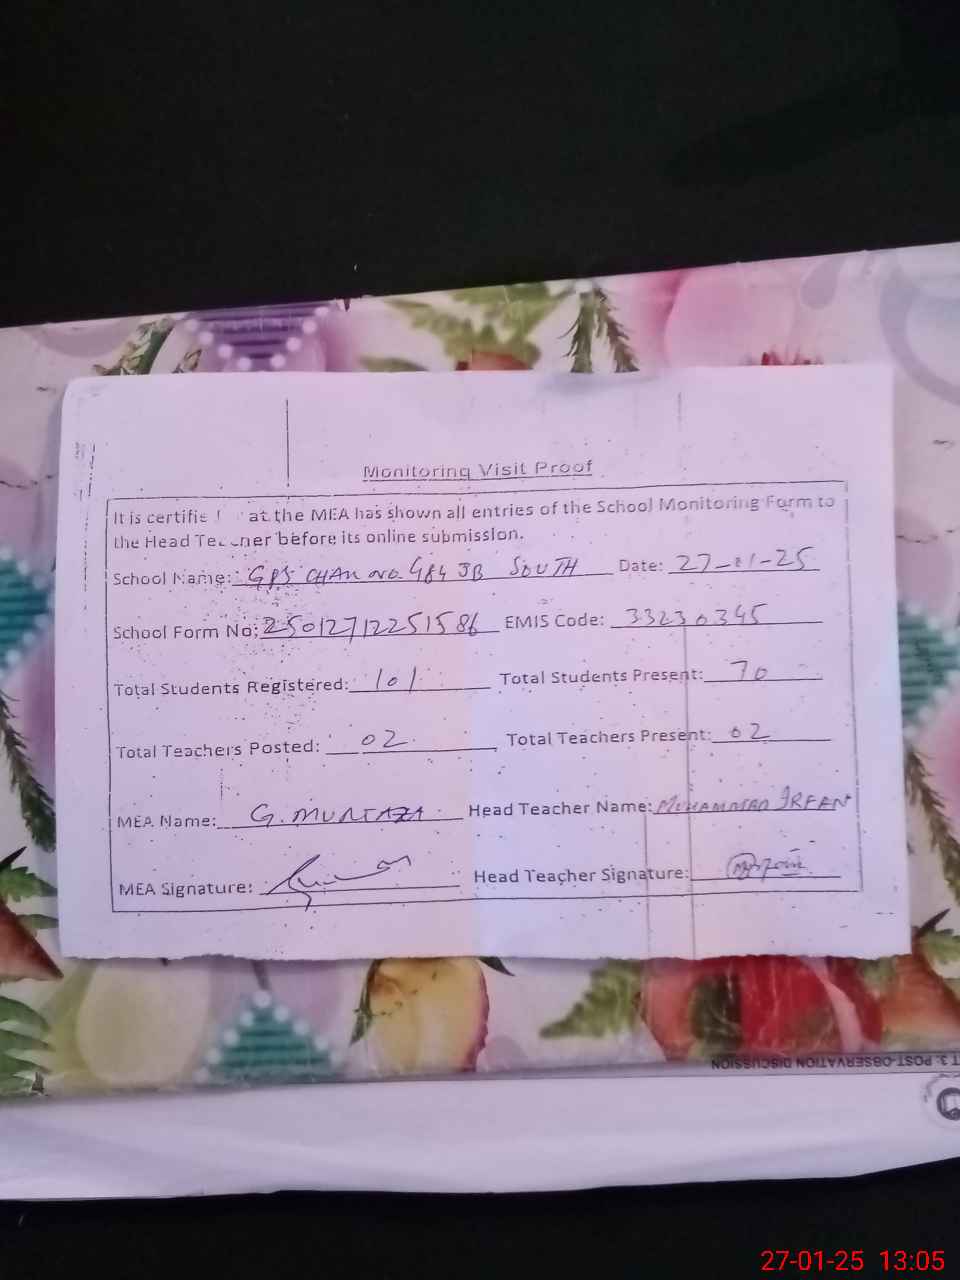 Monitoring Visit Proof
It is certifie at the MEA has shown all entries of the School Monitoring Form to
the Head Teacner before its online submission.
School Name: GPS CHAK NO. 484 JB SOUTH Date: 27-01-25
School Form No: 25012712251586 EMIS Code: 33230345
Total Students Registered: 101 Total Students Present: 70
Total Teachers Posted: 02 Total Teachers Present: 02
MEA Name: G. MURTAZA Head Teacher Name: MUHAMMAD IRFAN
MEA Signature: Head Teacher Signature:
T 3: POST-OBSERVATION DISCUSSION
27-01-25 13:05